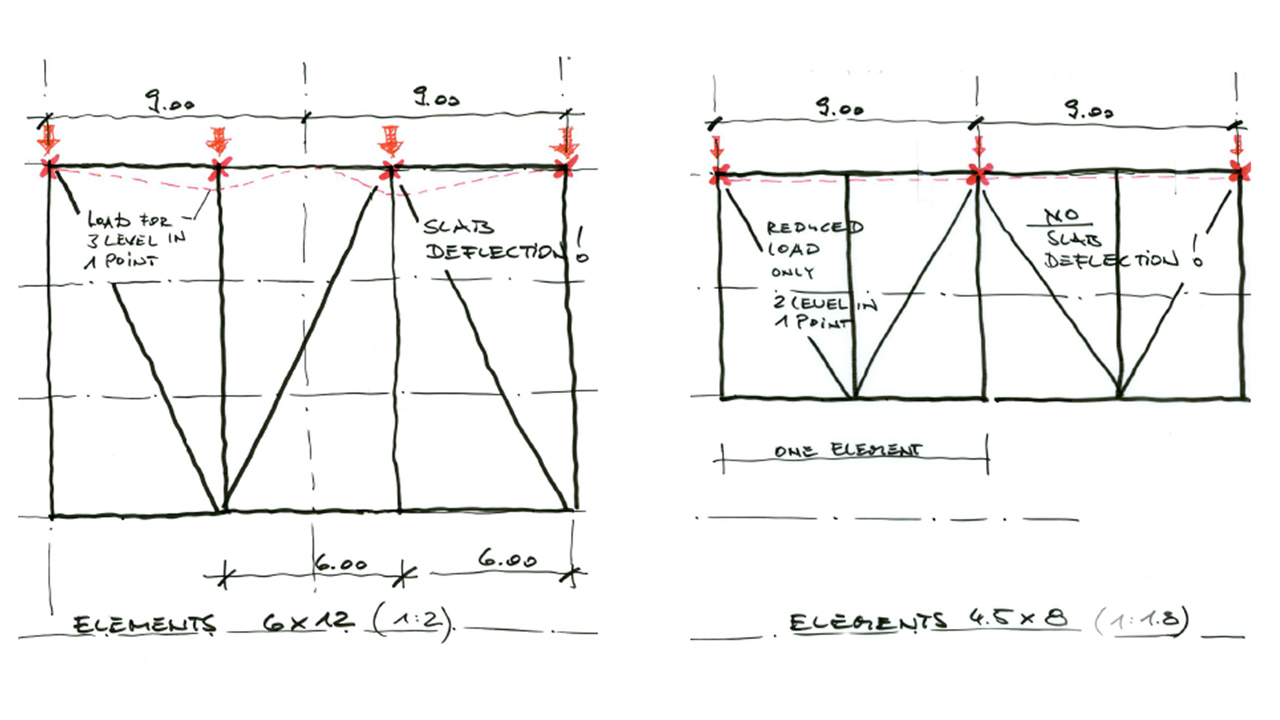 9.00
9.00
LOAD FOR
3 LEVEL IN
1 POINT
SLAB
DEFLECTION!
6.00
6.00
ELEMENTS 6x12 (1:2)
9.00
9.00
REDUCED
LOAD
ONLY
2 LEVEL IN
1 POINT
NO
SLAB
DEFLECTION!
ONE ELEMENT
ELEMENTS 4.5x8 (1:1.8)